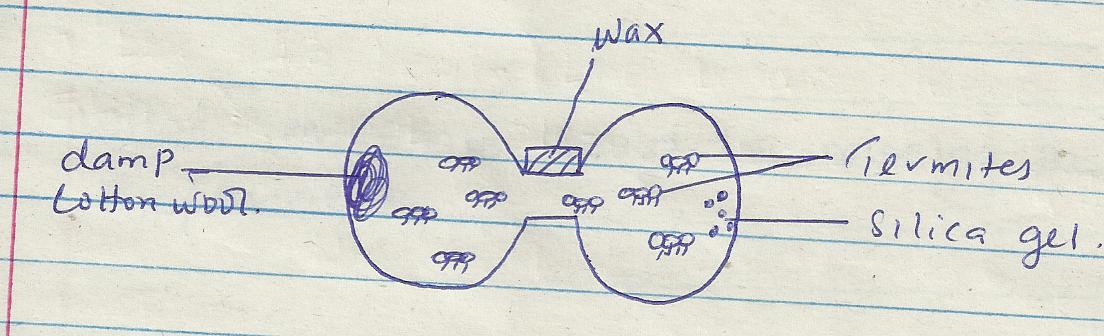 Wax
damp
Cotton wool.
Termites
Silica gel.